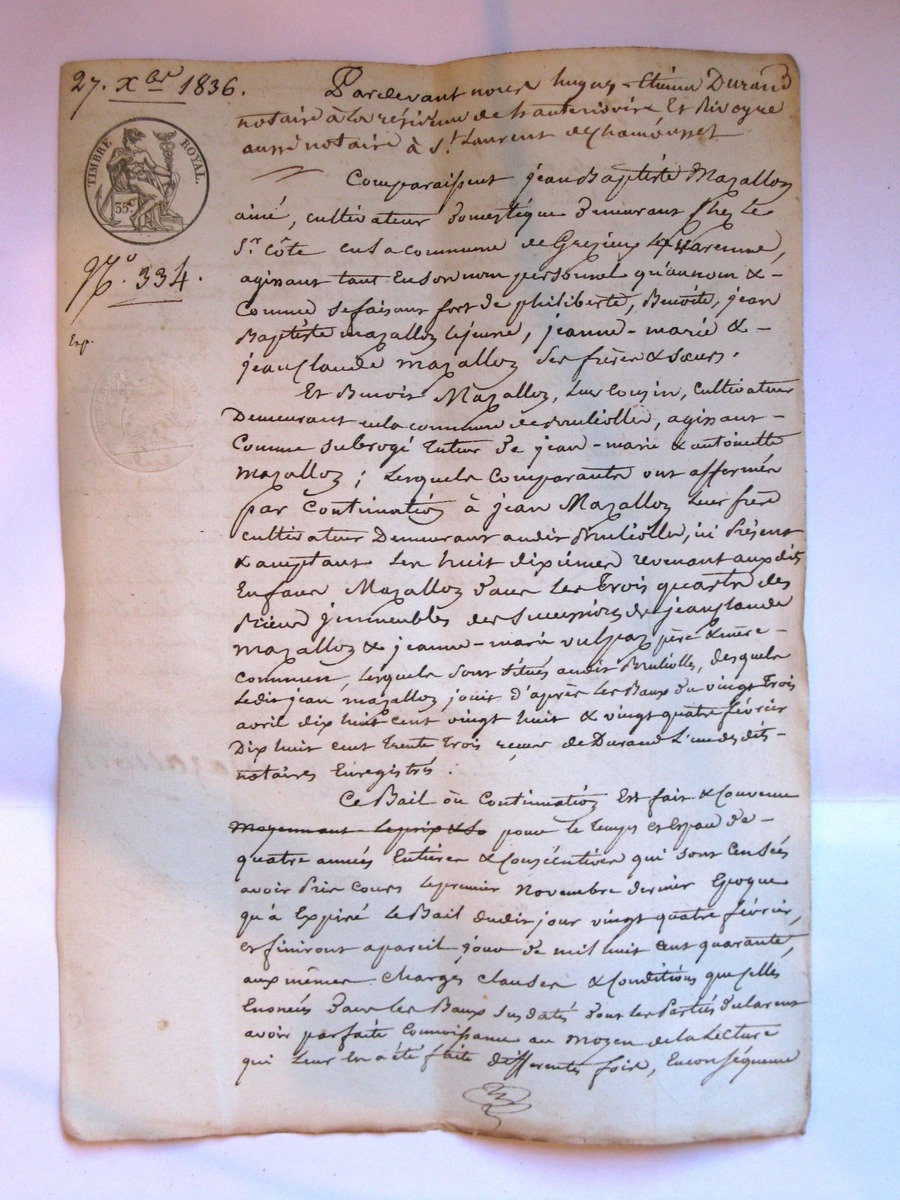 27. Xbre 1836.
Pardevant nous hugues-Etienne Durand
notaire à La résidence de hauterivoire Et Rivoyre
aussi notaire à St Laurent de Chamousset
TIMBRE ROYAL.
35c
Comparaissent jean Baptiste Mazallon
ainé, cultivateur domestique demeurant Chez Le
Sr Côte en La commune de Grezieu La Varenne,
N° 334.
agissant tant En son nom personnel qu'au nom &
Comme se faisant fort de philiberte, Benoîte, jean
Exp.
Baptiste mazallon Le jeune, jeanne-marie &
jean Claude mazallon Ses frères & sœurs.
Et Benoit Mazallon, Leur cousin, Cultivateur
Demeurant en la commune de Brulliolles, agissant
Comme subrogé tuteur de jean-marie & antoinette
Mazallon ; Lesquels Comparants ont affermé
par Continuation à jean Mazallon Leur frère
cultivateur Demeurant audit Brulliolles, ici Présent
& acceptant Les huit dixièmes revenant auxdits
Enfans Mazallon dans Les Trois quarts des
Biens immeubles des Successions de jean Claude
Mazallon & jeanne-marie vulpas père & mère
commun, Lesquels sont situés audit Brulliolles, desquels
Ledit jean mazallon jouit d'après Les Baux du vingt Trois
avril dix huit cent vingt huit & vingt quatre février
Dix huit cent trente trois reçus de Durand L'un desdits
notaires Enregistrés.
Ce Bail ou Continuation Est fait & Convenu
moyennant Le prix & La pour le temps et Espace de
quatre années Entières & Consécutives qui sont Censées
avoir Pris cours Le premier Novembre dernier Epoque
qu'à Expiré Le Bail dudit jour vingt quatre février,
et finiront à pareil jour de mil huit cent quarante,
aux mêmes Charges Clauses & Conditions que Celles
Enoncées dans Les Baux susdatés dont Les Parties déclarent
avoir parfaite Connoissance au moyen de La Lecture
qui Leur En a été faite differentes fois, En conséquence